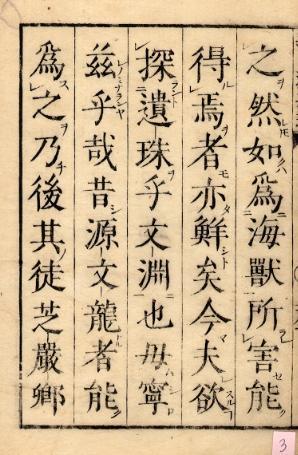 之然如爲海獸所害能
得焉者亦鮮矣今夫欲
探遺珠乎文淵也毋寧
茲乎哉昔源文龍者能
爲之乃後其徒芝嚴鄉
3